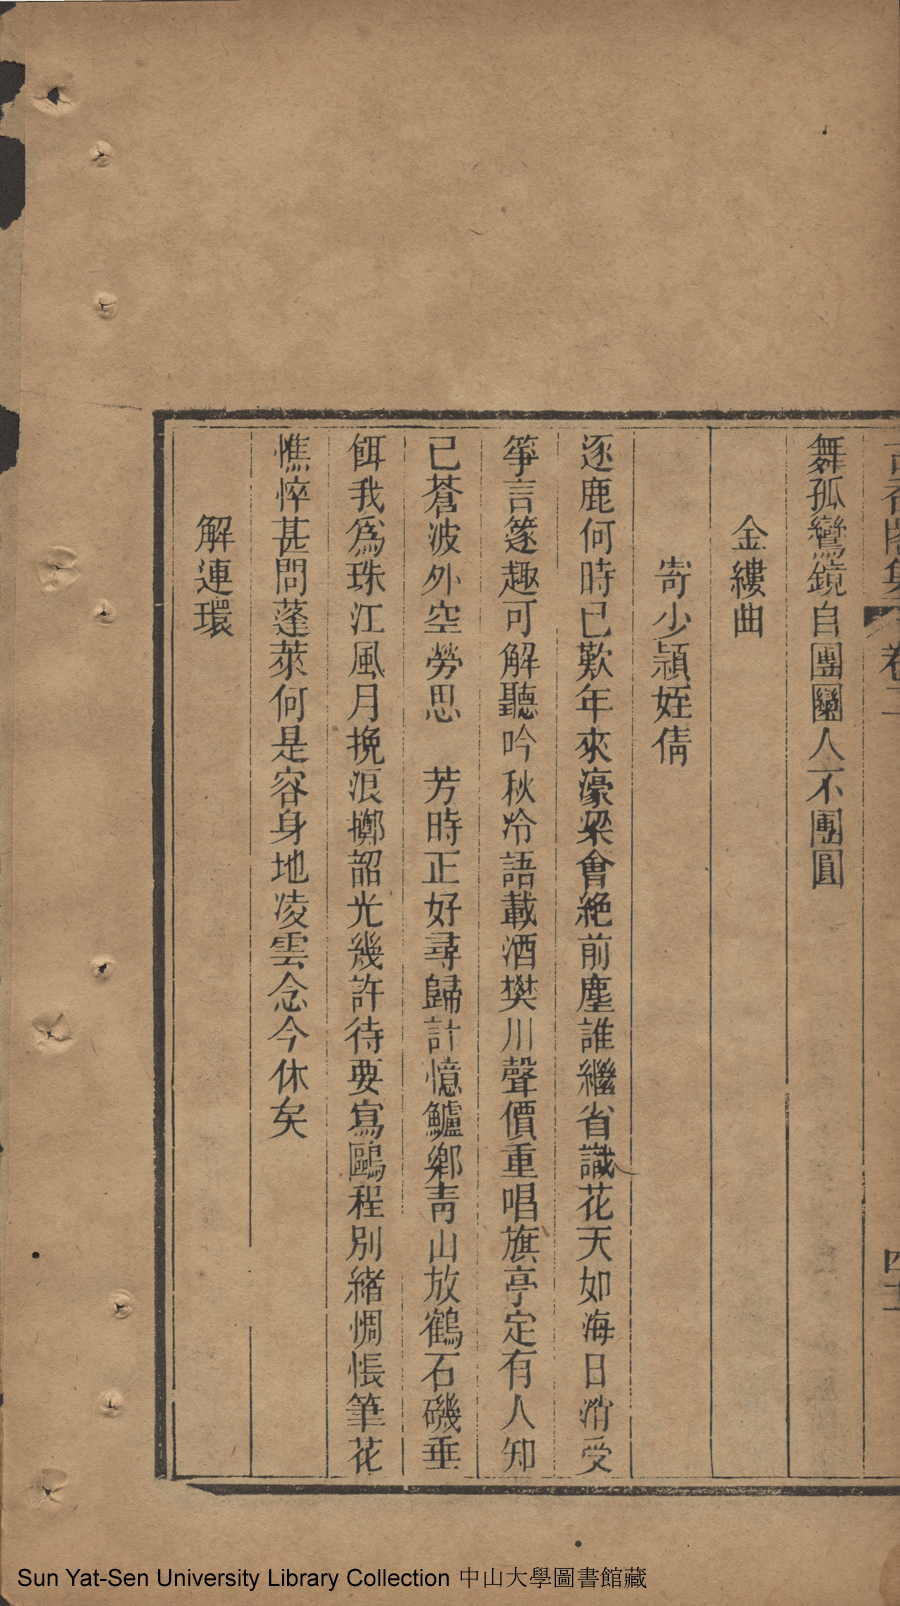 舞孤鸞鏡自團圞人不團圓
金縷曲
寄少潁姪倩
逐鹿何時已歎年來濠梁會絶前塵誰繼省識花天如海日消受
箏言篴趣可解聽吟秋冷語載酒樊川聲價重唱旗亭定有人知
已蒼波外空勞思　芳時正好尋歸計憶鱸鄉靑山放鶴石磯垂
餌我爲珠江風月挽浪擲韶光幾許待要寫鷗程別緒惆悵筆花
憔悴甚問蓬萊何是容身地凌雲念今休矣
解連環
Sun Yat-Sen University Library Collection 中山大學圖書館藏